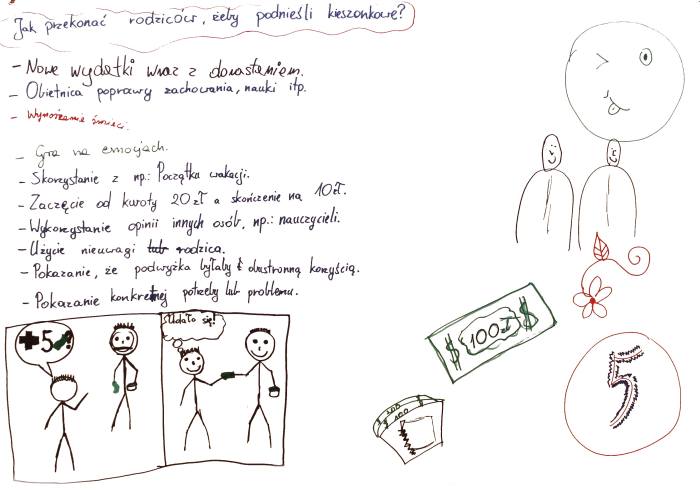 Jak przekonać rodziców, żeby podnieśli kieszonkowe?
- Nowe wydatki wraz z dorastaniem.
- Obietnica poprawy zachowania, nauki itp.
- Wynoszenie śmieci.
- Gra na emocjach.
- Skorzystanie z np.: Początku wakacji.
- Zaczęcie od kwoty 20zł a skończenie na 10zł.
- Wykorzystanie opinii innych osób, np.: nauczycieli.
- Użycie nieuwagi lub rodzica.
- Pokazanie, że podwyżka byłaby obustronną korzyścią.
- Pokazanie konkretnej potrzeby lub problemu.
+5
Udało się!
$ 100zł $
100
100
5